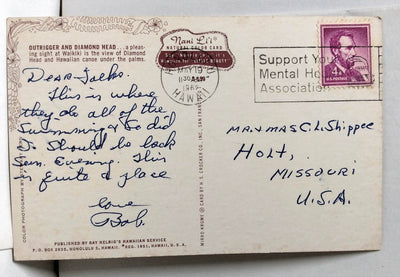 OUTRIGGER AND DIAMOND HEAD . . . a plea-
sing sight at Waikiki is the view of Diamond
Head and Hawaiian canoe under the palms.
Nani Li'i
NATURAL COLOR CARD
MAY 19
830 AM
HAWAII
Support You
Mental He
Association
4¢
U.S. POSTAGE
Dear Folks.
This is where
they do all of the
Swimming & so did
I. Should be back
Sun. Evening. This
is quite a place
Love
Bob.
Mr. & Mrs C. L. Shippee
Holt,
Missouri
U.S.A.
MIRRO-KROME ® CARD BY H. S. CROCKER CO. INC., SAN FRAN
COLOR PHOTOGRAPH BY
PUBLISHED BY RAY HELBIG'S HAWAIIAN SERVICE
P. O. BOX 2835, HONOLULU 3, HAWAII. ® REG. 1951, HAWAII, U. S. A.